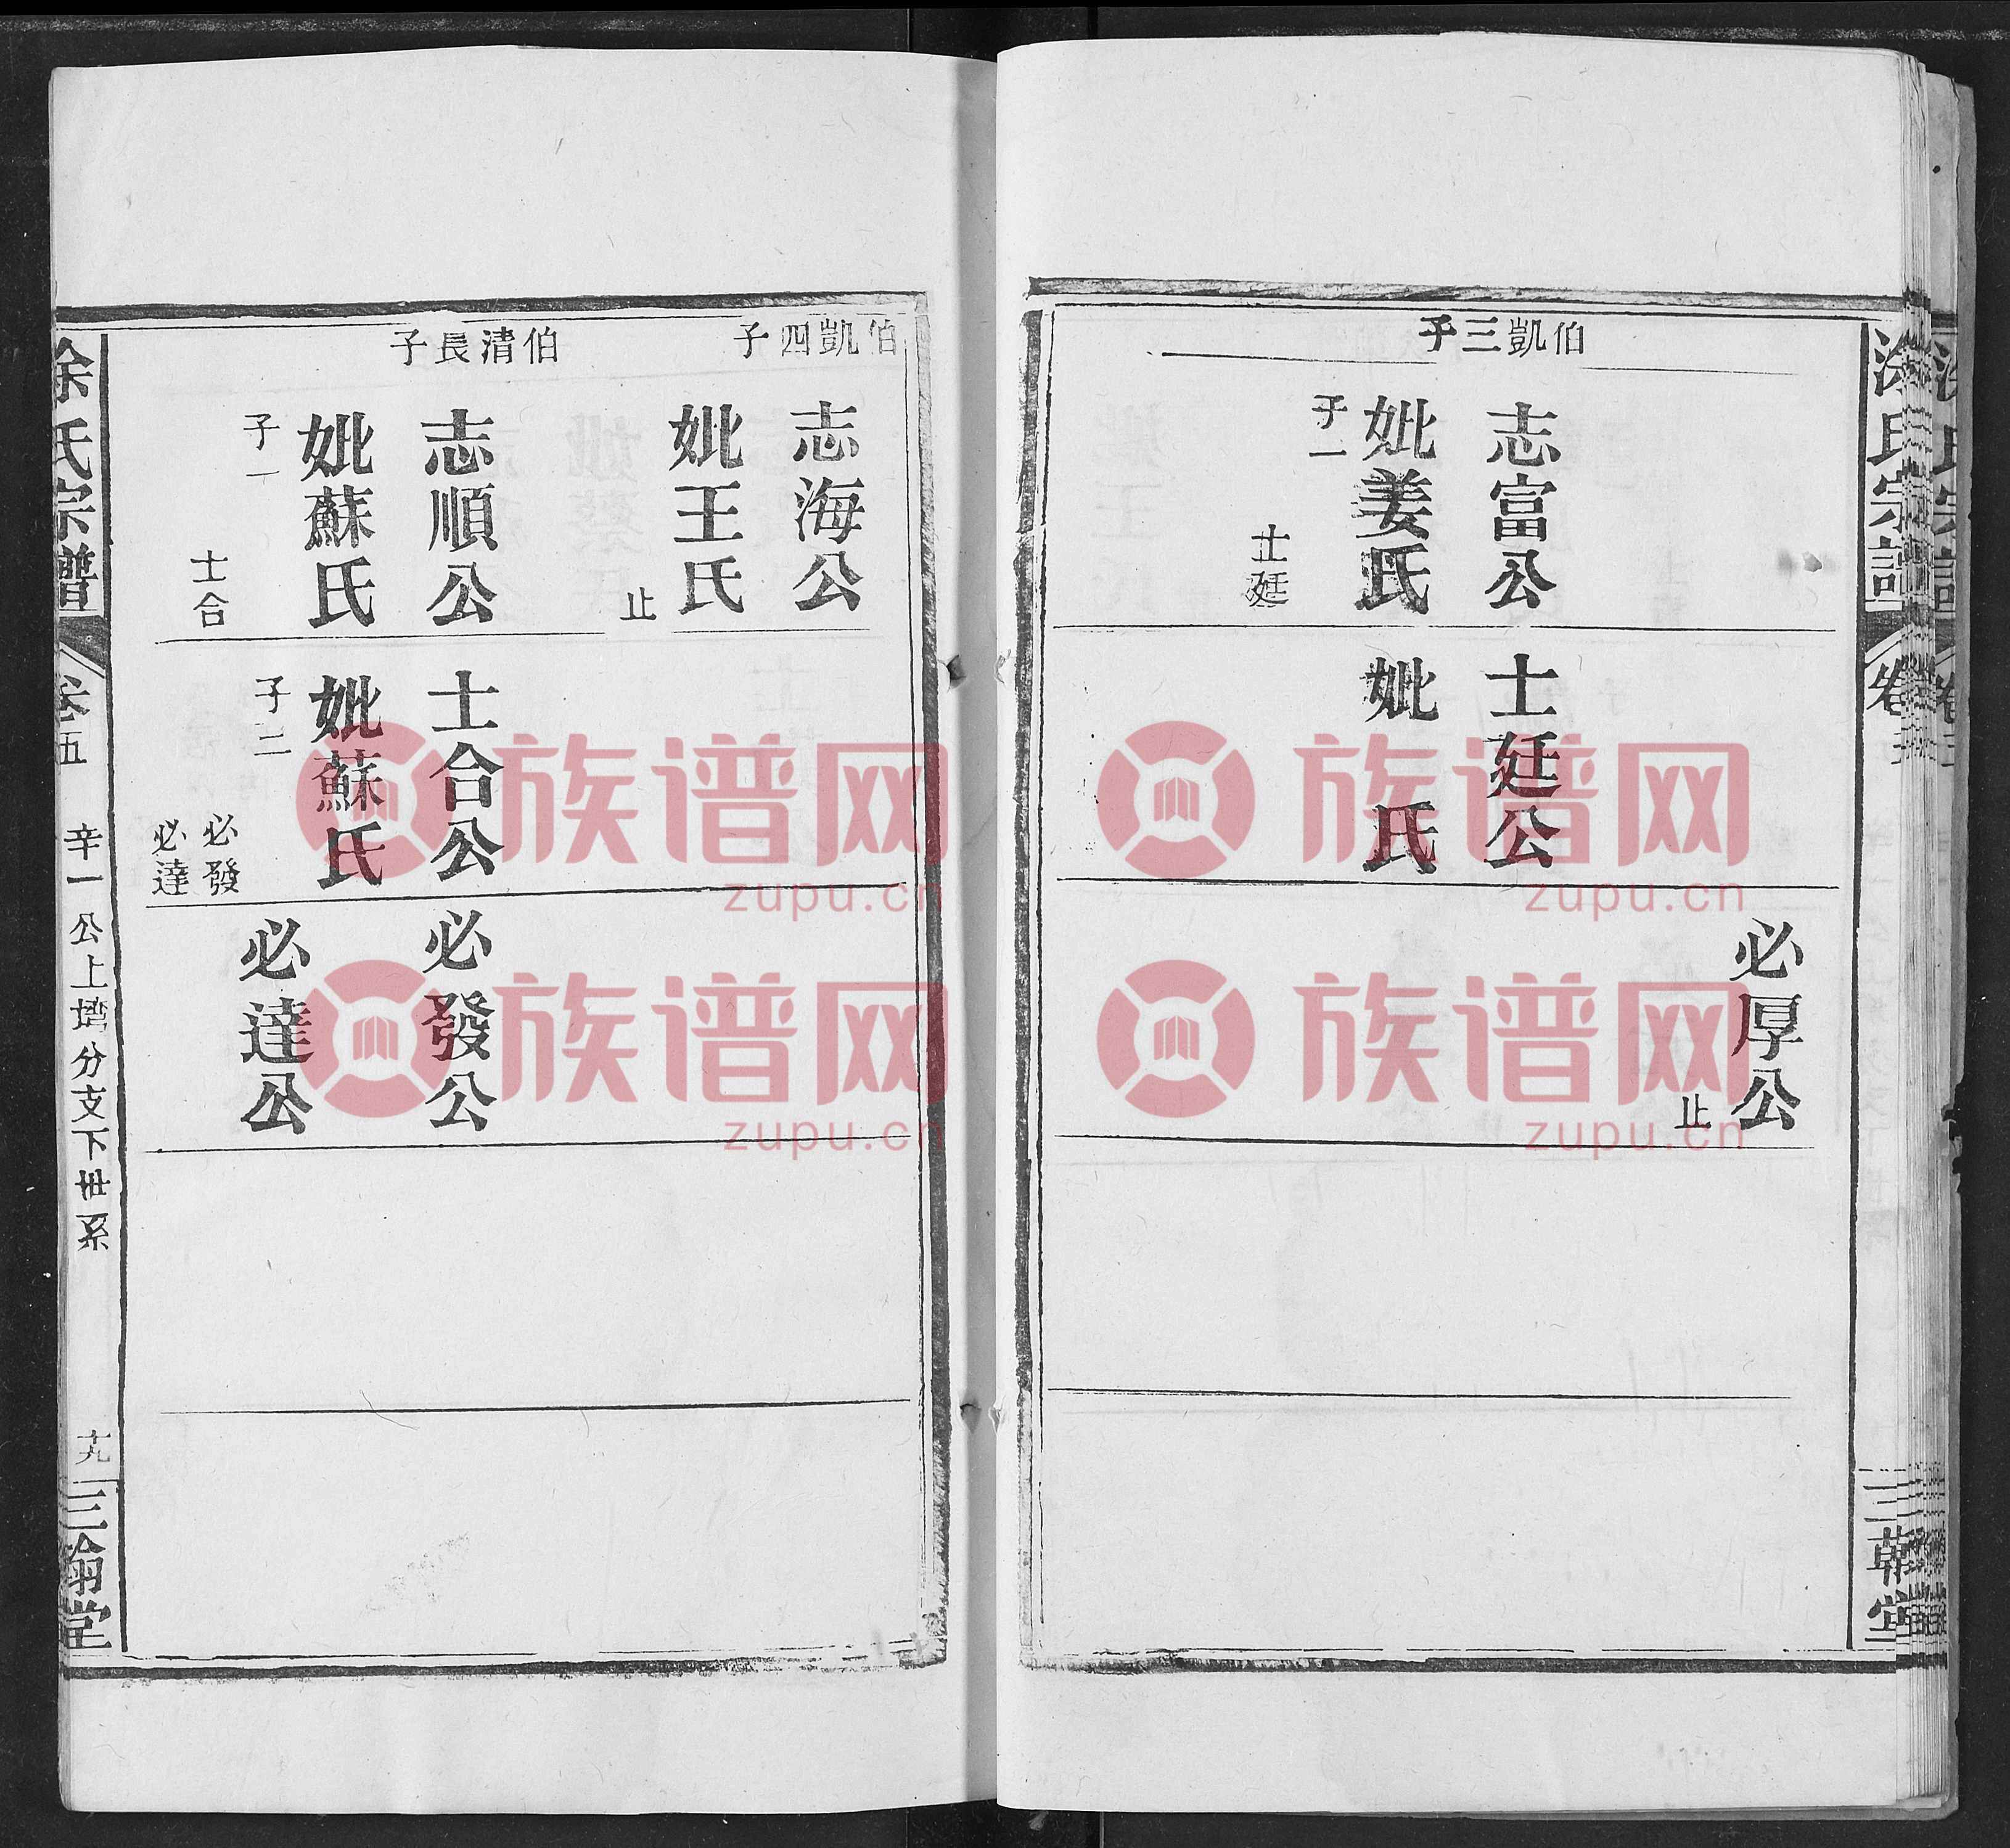 伯凱三子
志富公
妣姜氏
子一
士廷
士廷公
妣 氏
必厚公
止
伯凱四子
志海公
妣王氏
止
伯清長子
志順公
妣蘇氏
子一
士合
士合公
妣蘇氏
子二
必發
必達
必發公
必達公
涂氏宗譜
卷五
辛一公上塆分支下世系
十九
三翰堂
涂氏宗譜
卷五
三翰堂
族谱网
zupu.cn
族谱网
zupu.cn
族谱网
zupu.cn
族谱网
zupu.cn